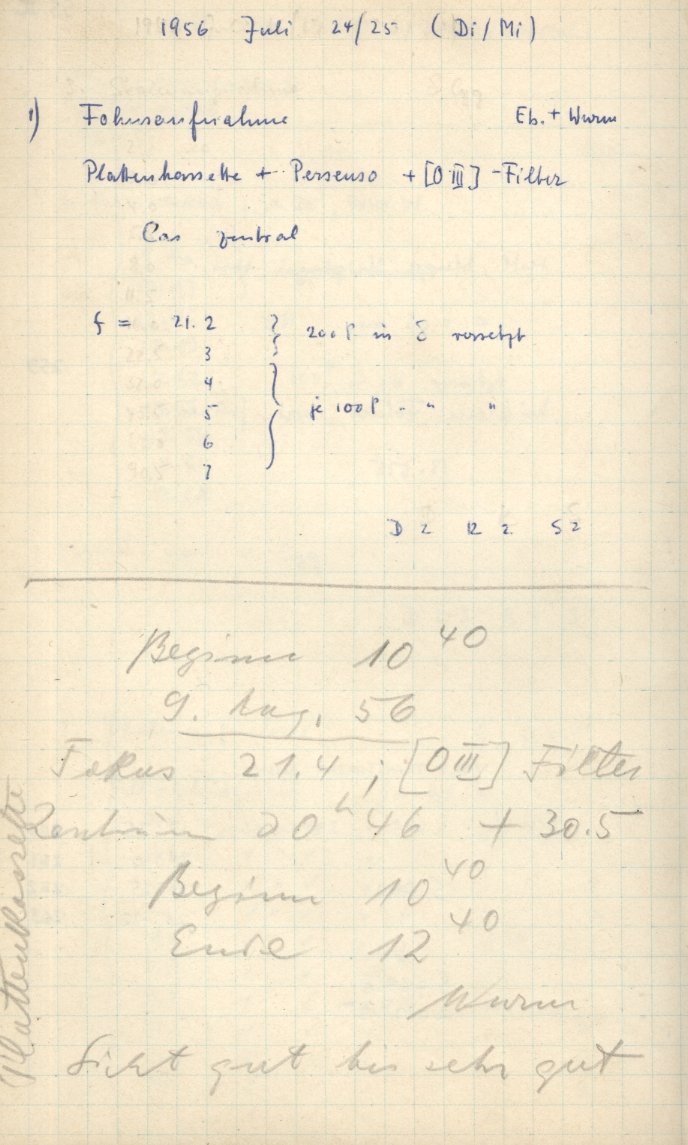 1956 Juli 24/25 (Di/Mi)
1) Fokusaufnahme Eb. + Wurm
Plattenkassette + Persenso + [O III] - Filter
Cas zentral
f = 21.2 } 200 P in δ versetzt
3
4
5 } je 100 P " " "
6
7
D 2 R 2 S 2
Beginn 10 40
9. Aug. 56
Fokus 21.4 ; [O III] Filter
Zentrum 20 h 46 + 30.5
Beginn 10 40
Ende 12 40
Wurm
Sicht gut bis sehr gut
Plattenkassette